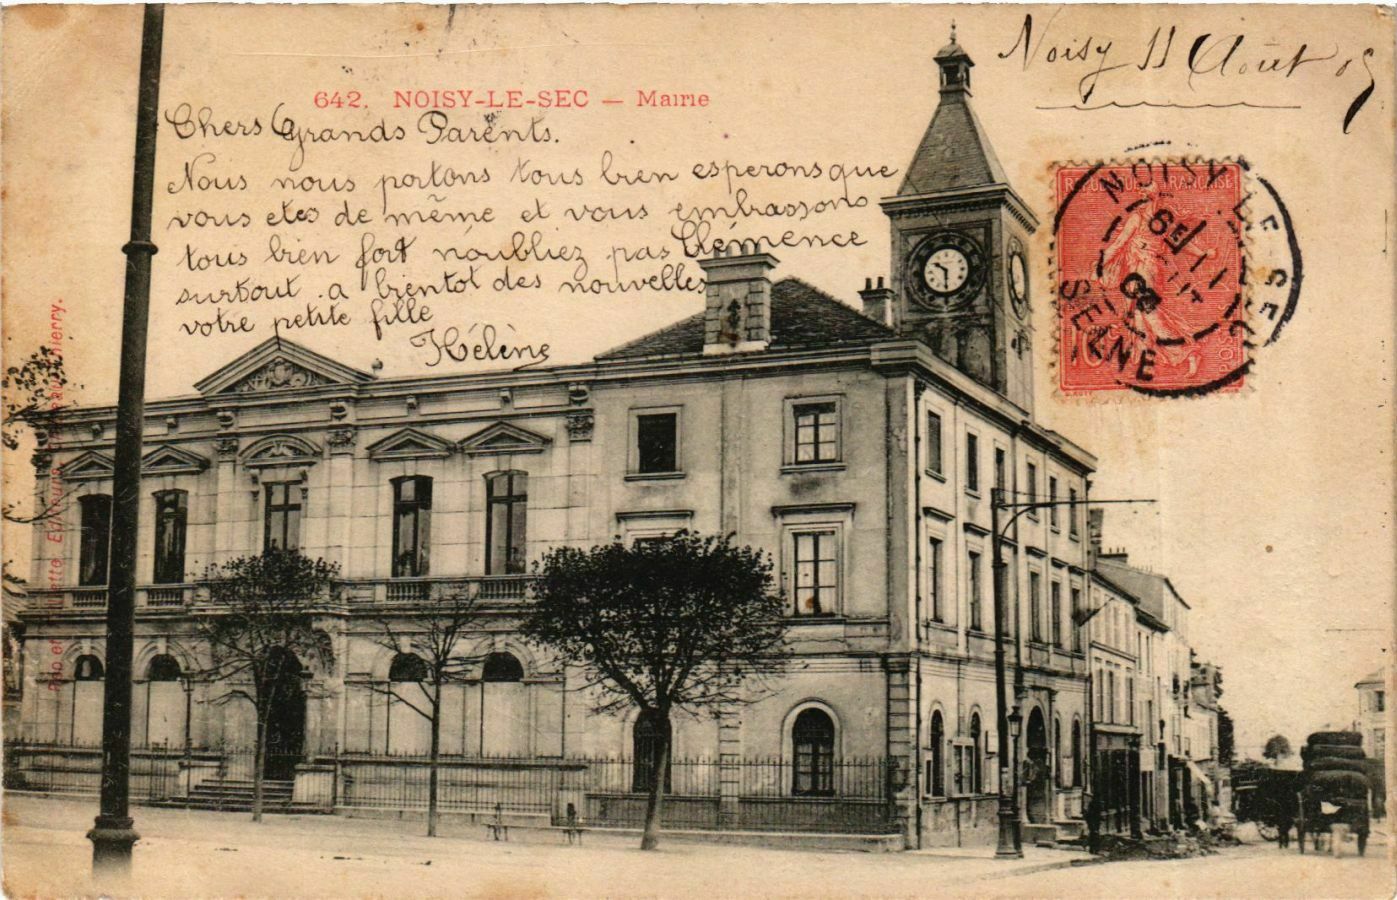 Noisy 11 Août 05
642. NOISY-LE-SEC — Mairie
Chers Grands Parents.
Nous nous portons tous bien esperons que
vous etes de même et vous embrassons
tous bien fort n'oubliez pas Clémence
surtout a bientot des nouvelles
votre petite fille
Hélène
REPUBLIQUE FRANÇAISE
NOISY-LE-SEC
SEINE
10
POSTES